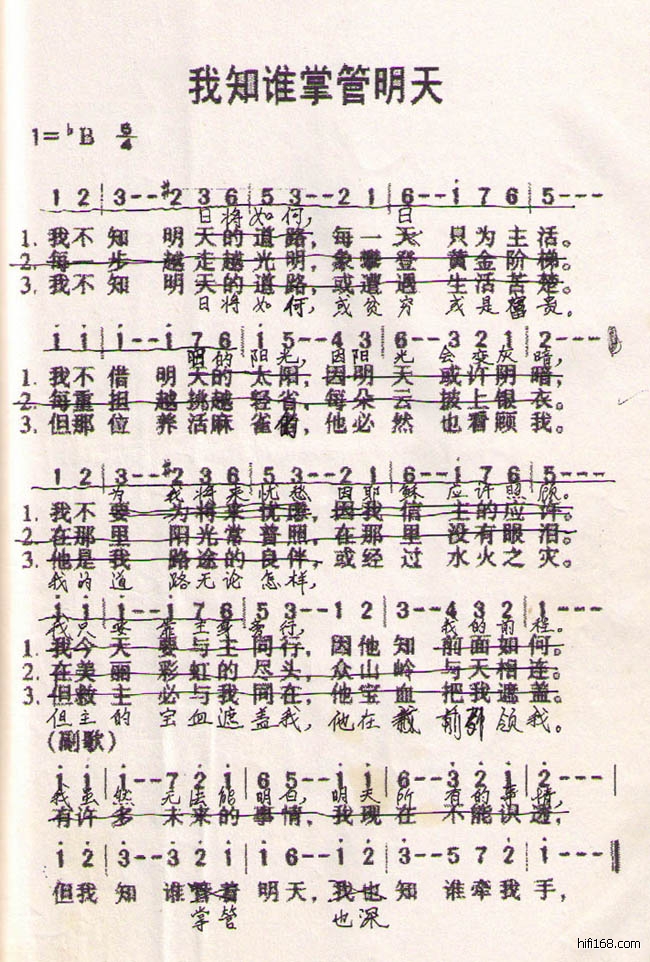 我知谁掌管明天
1=♭B 6/4
1 2 | 3 - - #2 3 6 | 5 3 - - 2 1 | 6 - - i 7 6 | 5 - - -
日将如何， 日
1. 我不知 明天的道路，每一天 只为主活。
2. 每一步 越走越光明，象攀登 黄金阶梯。
3. 我不知 明天的道路，或遭遇 生活苦楚。
日将如何，或贫穷 或是富贵。
i i | i - - i 7 6 | i 5 - - 4 3 | 6 - - 3 2 1 | 2 - - -
的阳光，因阳光会变灰暗，
1. 我不借 明天的太阳，因明天 或许阴暗，
2. 每重担 越挑越轻省，每朵云 披上银衣。
3. 但那位 养活麻雀的，他必然 也看顾我。
1 2 | 3 - - #2 3 6 | 5 3 - - 2 1 | 6 - - i 7 6 | 5 - - -
为我将来忧愁 因耶稣应许照顾。
1. 我不要 为将来忧虑，因我信 主的应许
2. 在那里 阳光常普照，在那里 没有眼泪。
3. 他是我 路途的良伴，或经过 水火之灾。
我的道路无论怎样，
i i | i - - i 7 6 | 5 3 - - 1 2 | 3 - - 4 3 2 | 1 - - -
我只要靠主旁行， 我的面前程。
1. 我今天 要与主同行，因他知 前面如何。
2. 在美丽 彩虹的尽头，众山岭 与天相连。
3. 但救主 必与我同在，他宝血 把我遮盖。
但主的宝血遮盖我，他在前引领我。
(副歌)
i i | i - - 7 2 i | 6 5 - - i i | 6 - - 3 2 i | 2 - - -
我虽然无法能明白，明天所有的事情，
有许多 未来的事情，我现在 不能识透，
i 2 | 3 - - 3 2 i | i 6 - - i 2 | 3 - - 5 7 2 | i - - -
但我知 谁管着明天，我也知 谁牵我手，
掌管 也深
hifi168.com